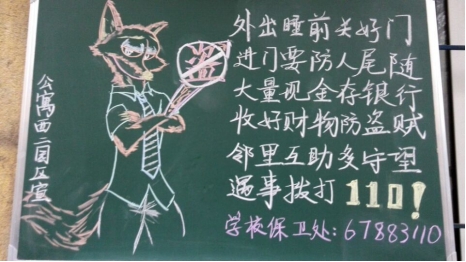 外出睡前关好门
进门要防人尾随
大量现金存银行
收好财物防盗贼
邻里互助多守望
遇事拨打110!
学校保卫处:67883110
公寓西二园区宣
盗